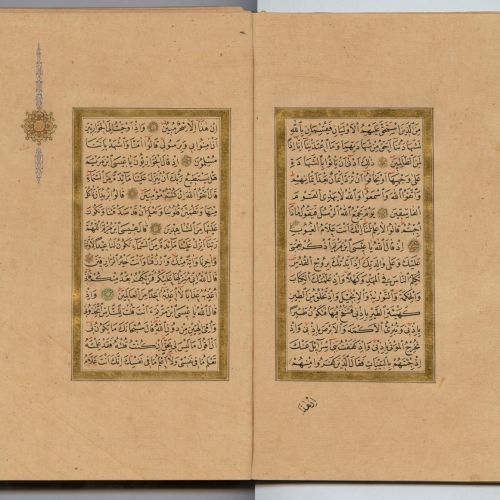 مِنَ الَّذِينَ اسْتَحَقَّ عَلَيْهِمُ الْأَوْلَيَانِ فَيُقْسِمَانِ بِاللَّهِ
لَشَهَادَتُنَا أَحَقُّ مِنْ شَهَادَتِهِمَا وَمَا اعْتَدَيْنَا إِنَّا إِذًا
لَمِنَ الظَّالِمِينَ ذَلِكَ أَدْنَى أَنْ يَأْتُوا بِالشَّهَادَةِ
عَلَى وَجْهِهَا أَوْ يَخَافُوا أَنْ تُرَدَّ أَيْمَانٌ بَعْدَ أَيْمَانِهِمْ
وَاتَّقُوا اللَّهَ وَاسْمَعُوا وَاللَّهُ لَا يَهْدِي الْقَوْمَ
الْفَاسِقِينَ يَوْمَ يَجْمَعُ اللَّهُ الرُّسُلَ فَيَقُولُ مَاذَا
أُجِبْتُمْ قَالُوا لَا عِلْمَ لَنَا إِنَّكَ أَنْتَ عَلَّامُ الْغُيُوبِ
إِذْ قَالَ اللَّهُ يَا عِيسَى ابْنَ مَرْيَمَ اذْكُرْ نِعْمَتِي
عَلَيْكَ وَعَلَى وَالِدَتِكَ إِذْ أَيَّدْتُكَ بِرُوحِ الْقُدُسِ
تُكَلِّمُ النَّاسَ فِي الْمَهْدِ وَكَهْلًا وَإِذْ عَلَّمْتُكَ الْكِتَابَ
وَالْحِكْمَةَ وَالتَّوْرَيةَ وَالْإِنْجِيلَ وَإِذْ تَخْلُقُ مِنَ الطِّينِ
كَهَيْئَةِ الطَّيْرِ بِإِذْنِي فَتَنْفُخُ فِيهَا فَتَكُونُ طَيْرًا
بِإِذْنِي وَتُبْرِئُ الْأَكْمَهَ وَالْأَبْرَصَ بِإِذْنِي وَإِذْ
تُخْرِجُ الْمَوْتَى بِإِذْنِي وَإِذْ كَفَفْتُ بَنِي إِسْرَائِيلَ عَنْكَ
إِذْ جِئْتَهُمْ بِالْبَيِّنَاتِ فَقَالَ الَّذِينَ كَفَرُوا مِنْهُمْ
ان هذا
إِنْ هَذَا إِلَّا سِحْرٌ مُبِينٌ وَإِذْ أَوْحَيْتُ إِلَى الْحَوَارِيِّينَ
أَنْ آمِنُوا بِي وَبِرَسُولِي قَالُوا آمَنَّا وَاشْهَدْ بِأَنَّنَا
مُسْلِمُونَ إِذْ قَالَ الْحَوَارِيُّونَ يَا عِيسَى ابْنَ مَرْيَمَ
هَلْ يَسْتَطِيعُ رَبُّكَ أَنْ يُنَزِّلَ عَلَيْنَا مَائِدَةً مِنَ السَّمَاءِ
قَالَ اتَّقُوا اللَّهَ إِنْ كُنْتُمْ مُؤْمِنِينَ قَالُوا نُرِيدُ أَنْ نَأْكُلَ
مِنْهَا وَتَطْمَئِنَّ قُلُوبُنَا وَنَعْلَمَ أَنْ قَدْ صَدَقْتَنَا وَنَكُونَ
عَلَيْهَا مِنَ الشَّاهِدِينَ قَالَ عِيسَى ابْنُ مَرْيَمَ اللَّهُمَّ
رَبَّنَا أَنْزِلْ عَلَيْنَا مَائِدَةً مِنَ السَّمَاءِ تَكُونُ لَنَا عِيدًا لِأَوَّلِنَا
وَآخِرِنَا وَآيَةً مِنْكَ وَارْزُقْنَا وَأَنْتَ خَيْرُ الرَّازِقِينَ
قَالَ اللَّهُ إِنِّي مُنَزِّلُهَا عَلَيْكُمْ فَمَنْ يَكْفُرْ بَعْدُ مِنْكُمْ فَإِنِّي
أُعَذِّبُهُ عَذَابًا لَا أُعَذِّبُهُ أَحَدًا مِنَ الْعَالَمِينَ وَإِذْ
قَالَ اللَّهُ يَا عِيسَى ابْنَ مَرْيَمَ ءَأَنْتَ قُلْتَ لِلنَّاسِ اتَّخِذُونِي
وَأُمِّيَ إِلَهَيْنِ مِنْ دُونِ اللَّهِ قَالَ سُبْحَانَكَ مَا يَكُونُ لِي
أَنْ أَقُولَ مَا لَيْسَ لِي بِحَقٍّ إِنْ كُنْتُ قُلْتُهُ فَقَدْ عَلِمْتَهُ
تَعْلَمُ مَا فِي نَفْسِي وَلَا أَعْلَمُ مَا فِي نَفْسِكَ إِنَّكَ أَنْتَ عَلَّامُ